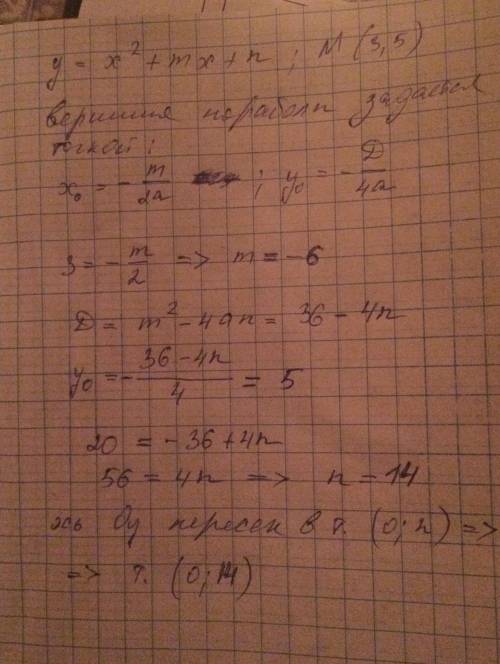 y = x² + mx + n ; M (3,5)
вершина параболы задается
точкой :
x₀ = - m/2a ; y₀ = - D/4a
3 = - m/2 => m = -6
D = m² - 4an = 36 - 4n
y₀ = - (36 - 4n)/4 = 5
20 = -36 + 4n
56 = 4n => n = 14
ось Oy пересек в т. (0; n) =>
=> т. (0; 14)